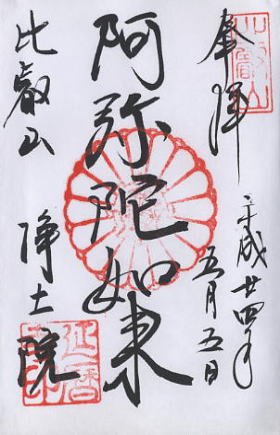 奉拝
平成廿四年
五月五日
比叡山
阿弥陀如来
比叡山
浄土院
延暦寺印